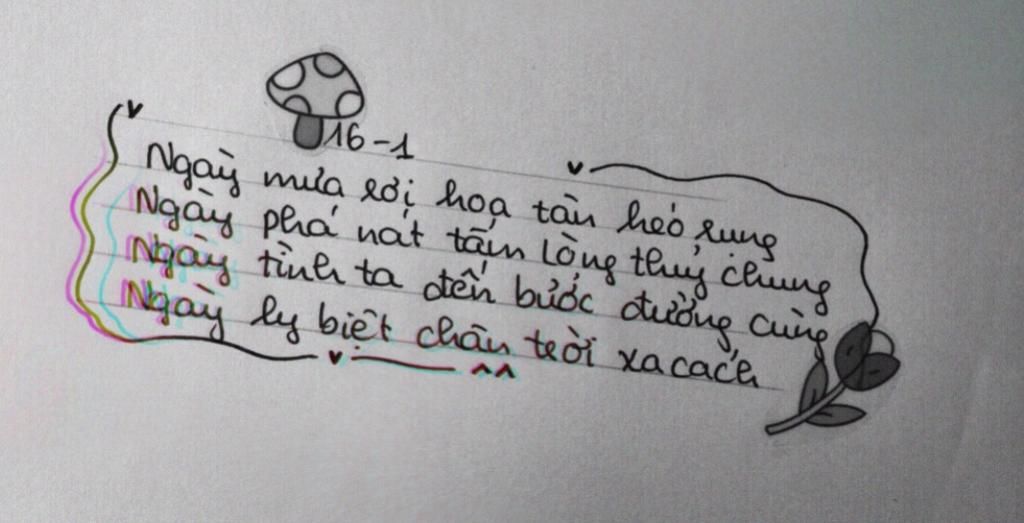 16-1
Ngày mưa rơi hoa tàn héo rung
Ngày phá nát tấm lòng thuỷ chung
Ngày tình ta đến bước đường cùng
Ngày ly biệt chân trời xa cách
^^